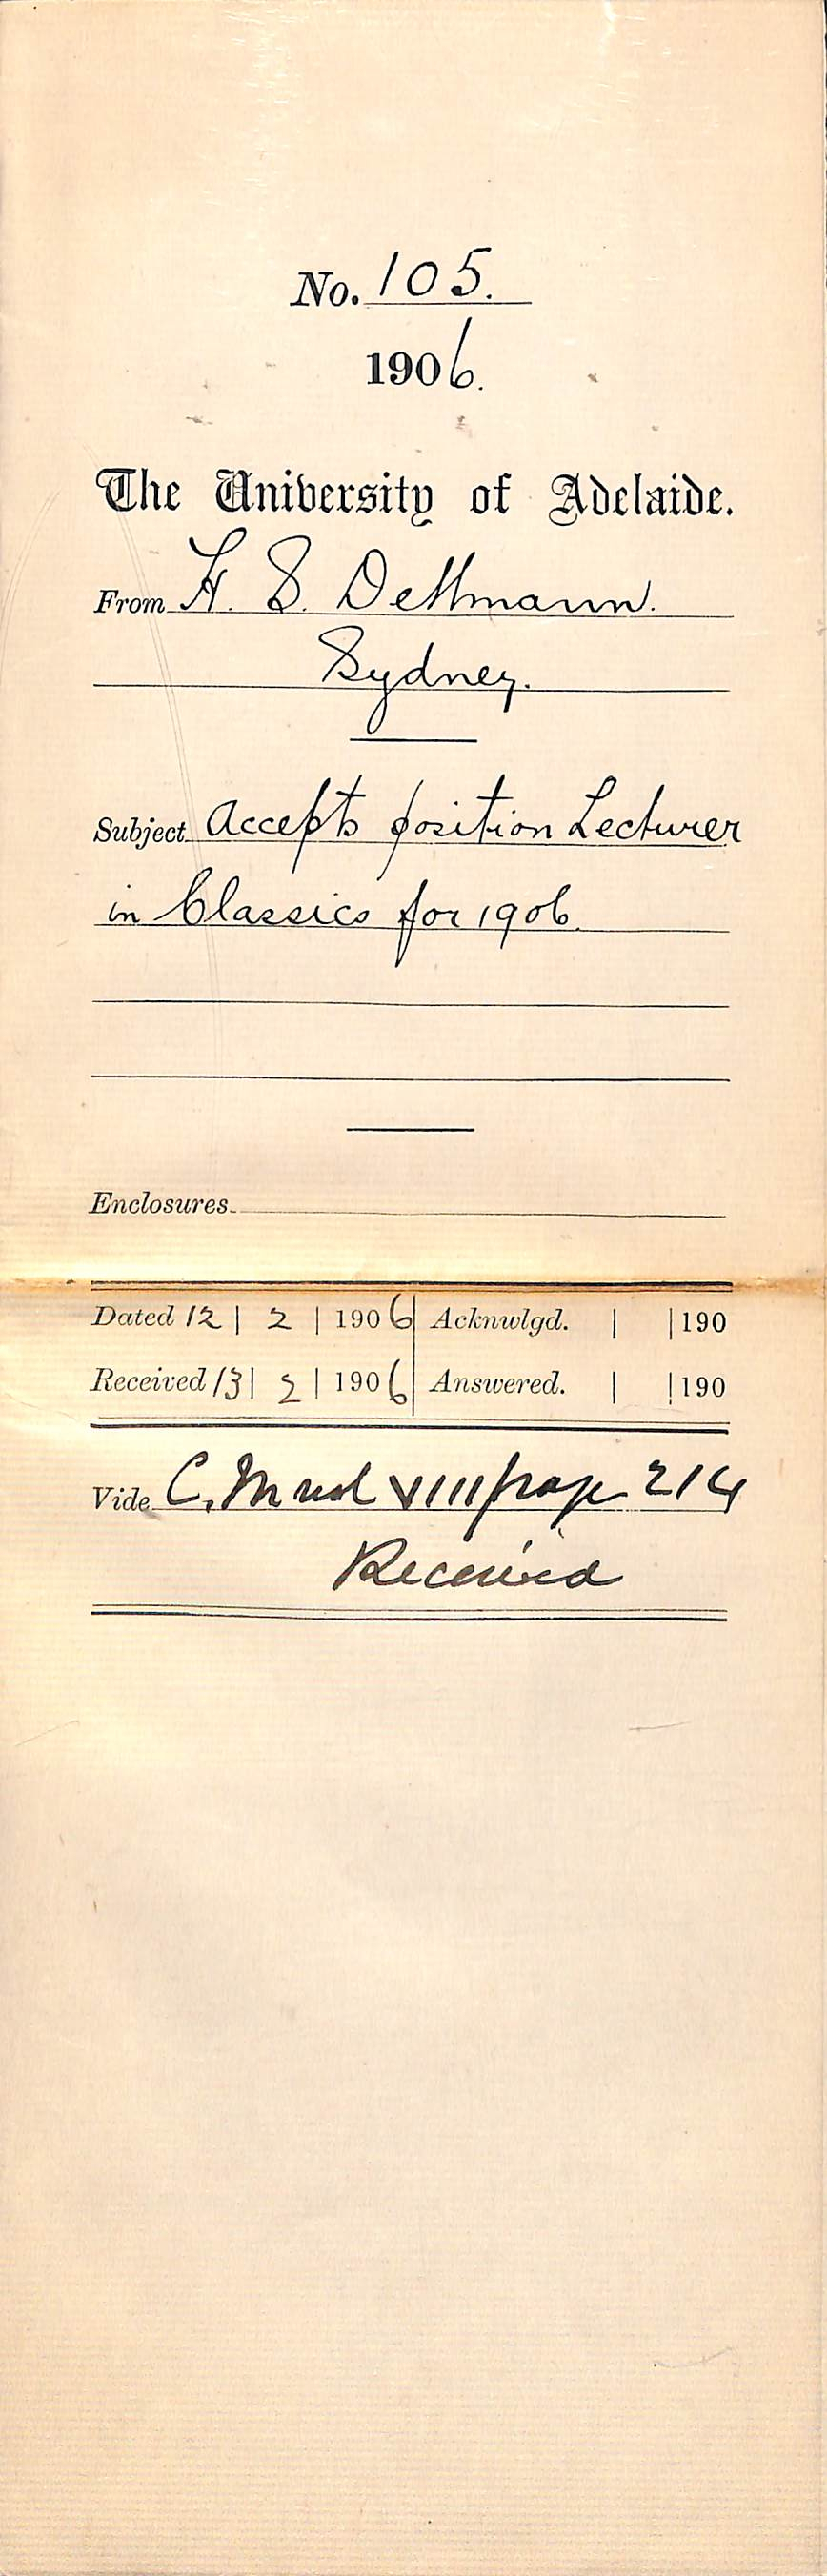 No. 105.
1906.
The University of Adelaide.
From H. S. Dettmann.
Sydney.
Subject Accepts position Lecturer
in Classics for 1906.
Enclosures
Dated 12 | 2 | 1906 Acknwlgd. | | 190
Received 13 | 2 | 1906 Answered. | | 190
Vide C. M vol VIII page 214
Received